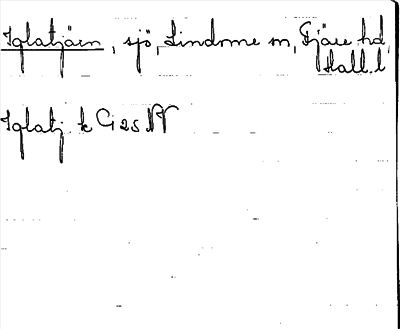 Iglatjärn, sjö, Lindome sn, Fjäre hd,
Hall. l
Iglatj k G 25 NV